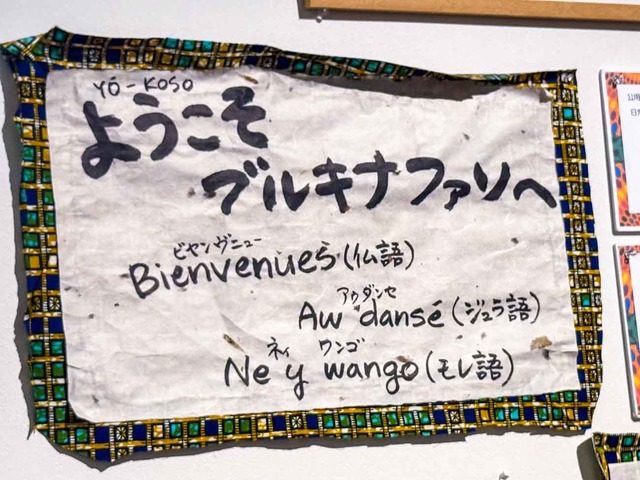 YŌ-KOSO
ようこそ
ブルキナファソへ
ビヤンヴニュー
Bienvenues (仏語)
アウダンセ
Aw dansé (ジュラ語)
ネイ ワンゴ
Ne y wango (モレ語)